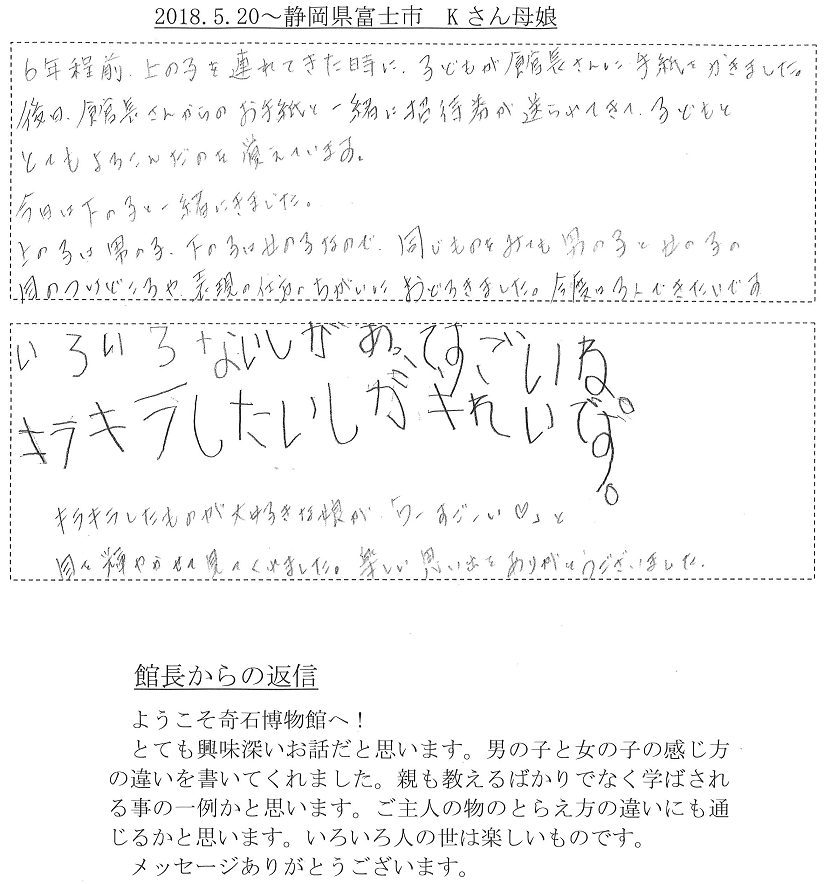 2018.5.20～静岡県富士市　Kさん母娘
6年程前、上の子を連れてきた時に、子どもが館長さんに手紙をかきました。
後日、館長さんからのお手紙と一緒に招待券が送られてきて、子どもと
とてもよろこんだのを覚えています。
今日は下の子と一緒にきました。
上の子は男の子、下の子は女の子なので、同じものをみても男の子と女の子の
目のつけどころや、表現の仕方のちがいにおどろきました。今度は3人できたいです
いろいろないしがあってすごいね。
キラキラしたいしがきれいです。
キラキラしたものが大好きな娘が、「わーすごーい♡」と
目を輝やかせて見てくれました。楽しい思い出をありがとうございました。
館長からの返信
ようこそ奇石博物館へ！
とても興味深いお話だと思います。男の子と女の子の感じ方
の違いを書いてくれました。親も教えるばかりでなく学ばされ
る事の一例かと思います。ご主人の物のとらえ方の違いにも通
じるかと思います。いろいろ人の世は楽しいものです。
メッセージありがとうございます。